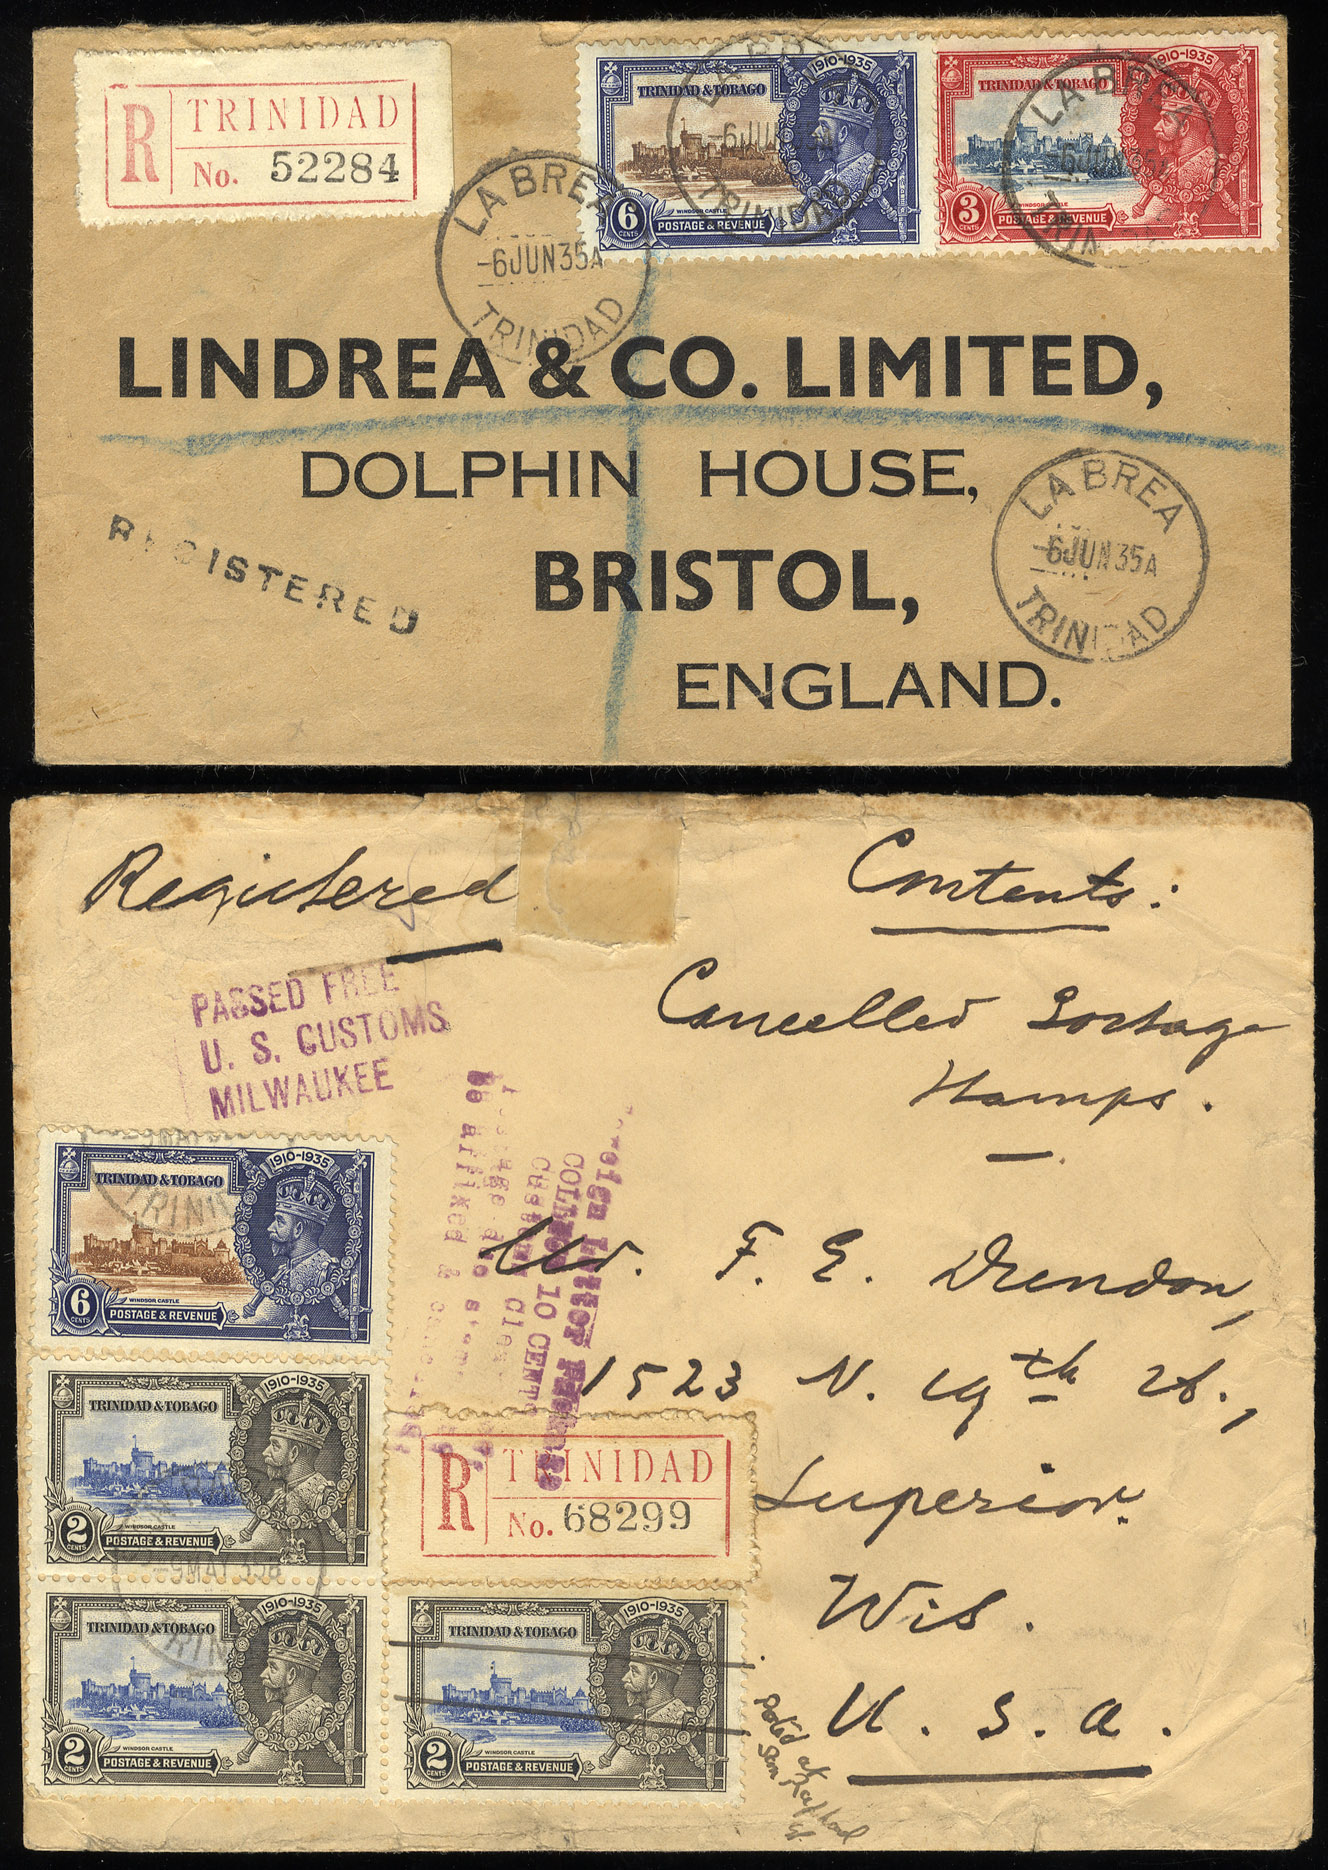 R TRINIDAD
No. 52284
TRINIDAD & TOBAGO
1910-1935
WINDSOR CASTLE
6 CENTS
POSTAGE & REVENUE
TRINIDAD & TOBAGO
1910-1935
WINDSOR CASTLE
3 CENTS
POSTAGE & REVENUE
LA BREA
-6JUN35A
TRINIDAD
LA BREA
-6JUN35A
TRINIDAD
LINDREA & CO. LIMITED,
DOLPHIN HOUSE,
BRISTOL,
ENGLAND.
REGISTERED
LA BREA
-6JUN35A
TRINIDAD
Registered
Contents:
Cancelled Postage
Stamps.
PASSED FREE
U. S. CUSTOMS
MILWAUKEE
Foreign Letter Package
COLLECT 10 CENTS
customs
Postage due stamps
be affixed &
TRINIDAD & TOBAGO
1910-1935
WINDSOR CASTLE
6 CENTS
POSTAGE & REVENUE
F. E. Drendon,
1523 N. 19th St.,
Superior.
Wis.
U. S. A.
TRINIDAD & TOBAGO
1910-1935
WINDSOR CASTLE
2 CENTS
POSTAGE & REVENUE
R TRINIDAD
No. 68299
-9MAY
TRIN
TRINIDAD & TOBAGO
1910-1935
WINDSOR CASTLE
2 CENTS
POSTAGE & REVENUE
TRINIDAD & TOBAGO
1910-1935
WINDSOR CASTLE
2 CENTS
POSTAGE & REVENUE
Posted at
San Rafael